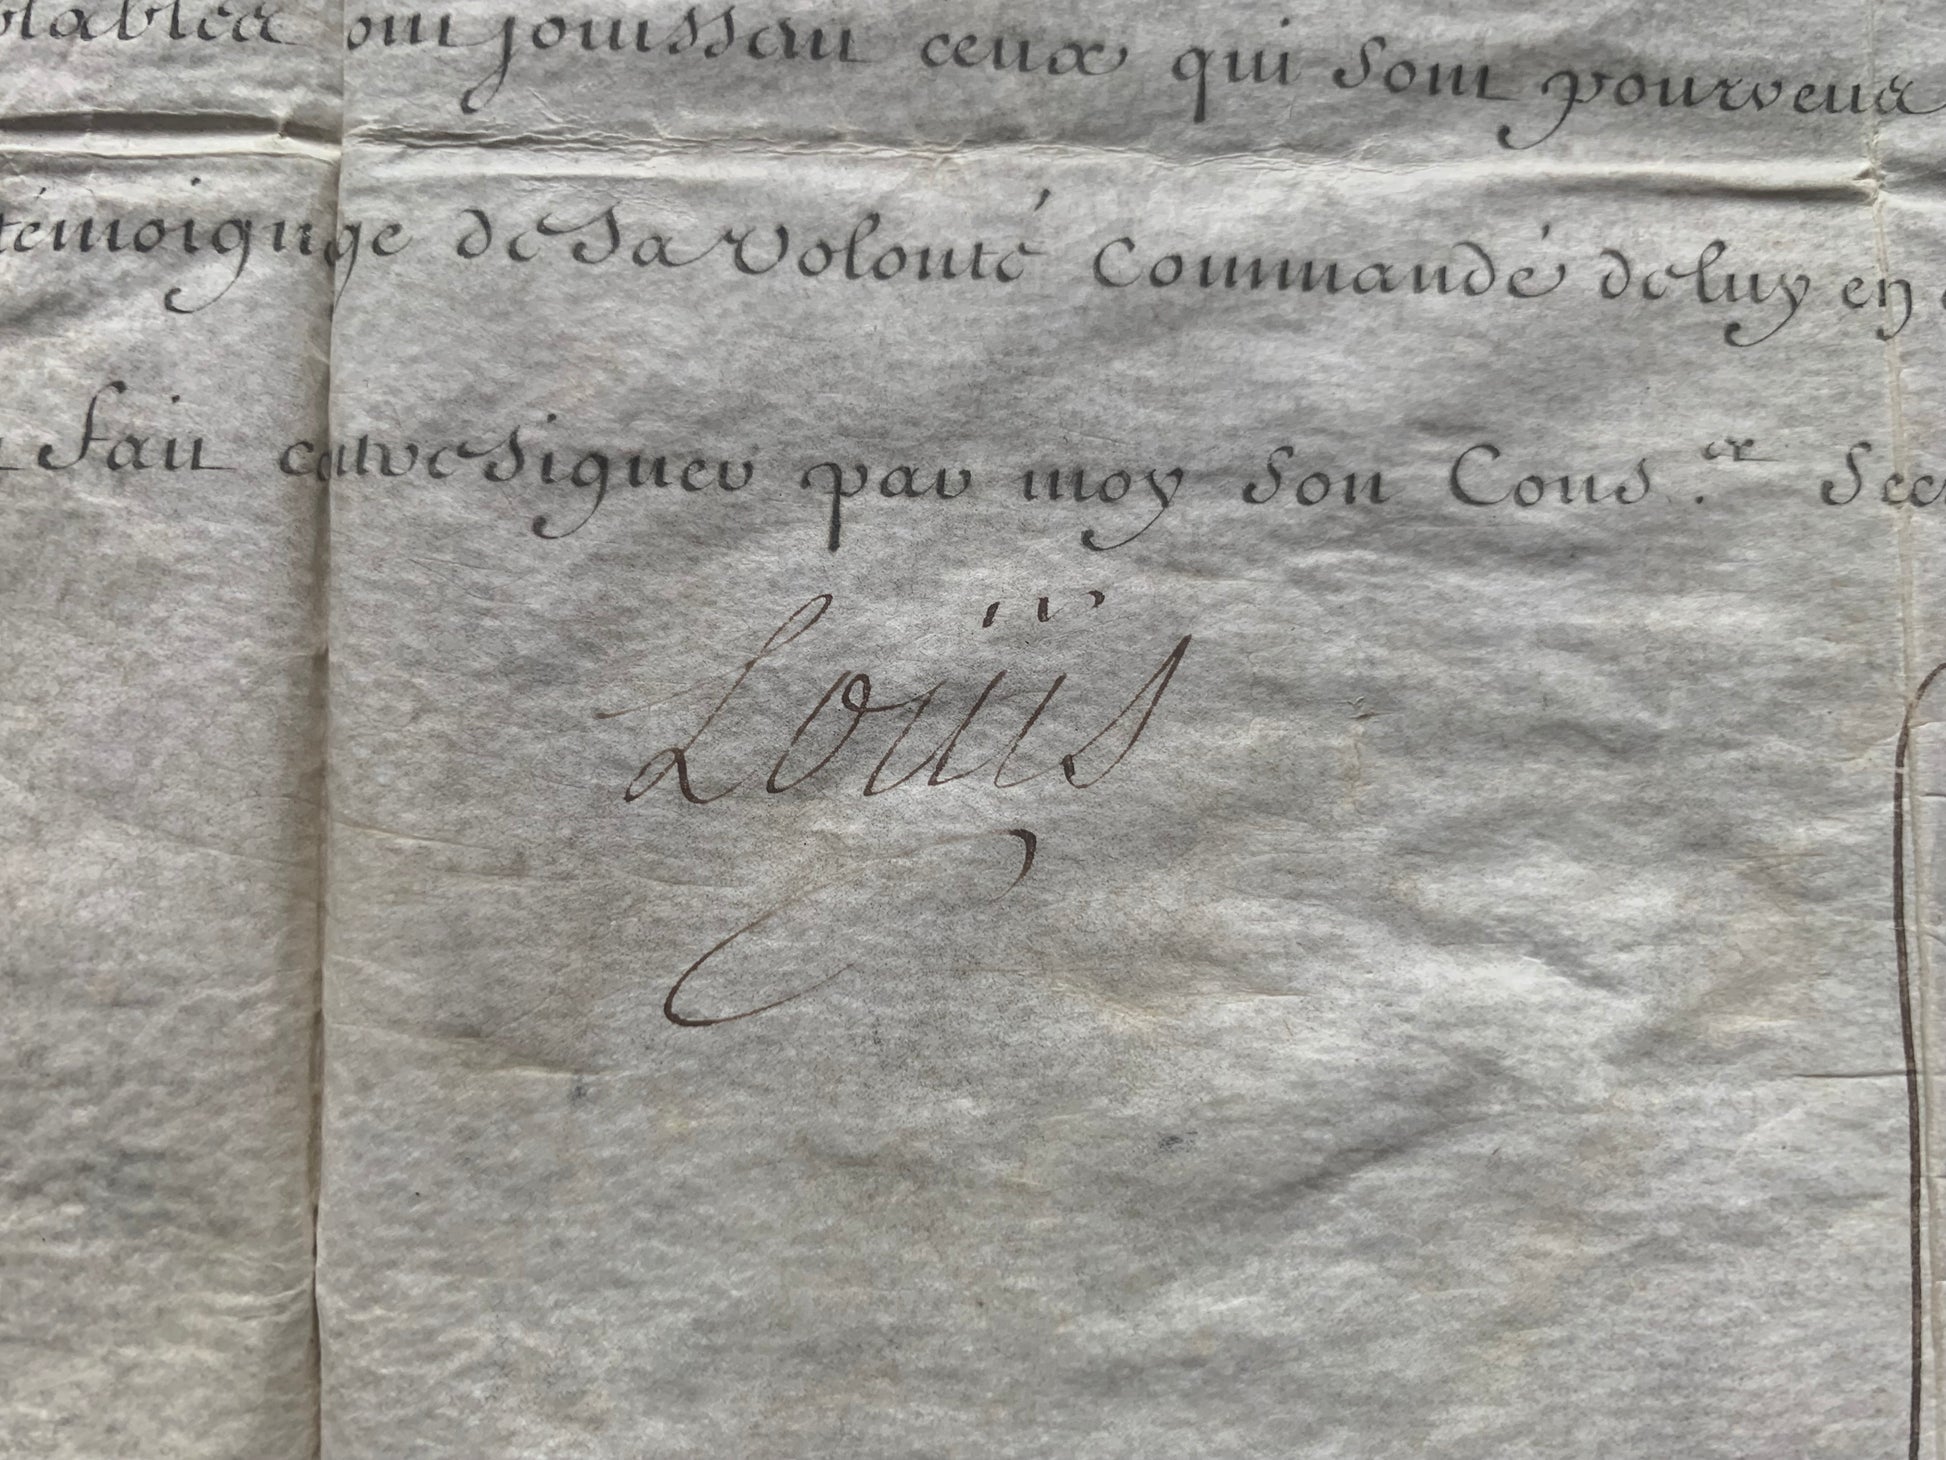 dont jouissent ceux qui sont pourveus
témoignage de Sa Volonté Commandé de luy en
fait contresigner par moy son Cons.er Sec
Loüis